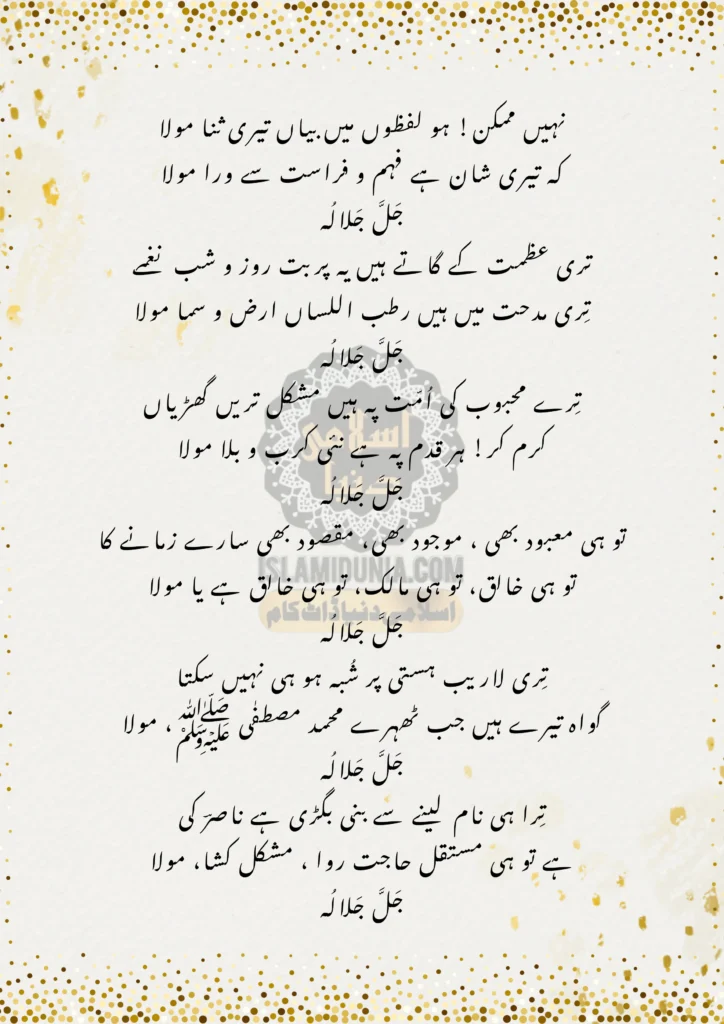 نہیں ممکن! ہو لفظوں میں بیاں تیری ثنا مولا
کہ تیری شان ہے فہم و فراست سے ورا مولا
جَلَّ جَلَالُہ
تری عظمت کے گاتے ہیں یہ پربت روز و شب نغمے
تِری مدحت میں ہیں رطب اللساں ارض و سما مولا
جَلَّ جَلَالُہ
تِرے محبوب کی اُمّت پہ ہیں مشکل تریں گھڑیاں
کرم کر! ہر قدم پہ ہے نئی کرب و بلا مولا
جَلَّ جَلَالُہ
تو ہی معبود بھی ، موجود بھی، مقصود بھی سارے زمانے کا
تو ہی خالق، تو ہی مالک، تو ہی خالق ہے یا مولا
جَلَّ جَلَالُہ
تِری لاریب ہستی پر شُبہ ہو ہی نہیں سکتا
گواہ تیرے ہیں جب ٹھہرے محمد مصطفٰی ﷺ ، مولا
جَلَّ جَلَالُہ
تِرا ہی نام لینے سے بنی بگڑی ہے ناصرؔ کی
ہے تو ہی مستقل حاجت روا ، مشکل کشا، مولا
جَلَّ جَلَالُہ
اسلامی
دنیا
ISLAMIDUNIA.COM
اسلامی دنیا ڈاٹ کام